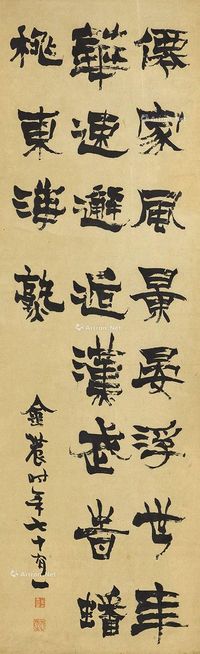 僊家風景晏浮世年
華速邂逅漢武旹蟠
桃東海熟
金農時年七十有一
Artron.Net